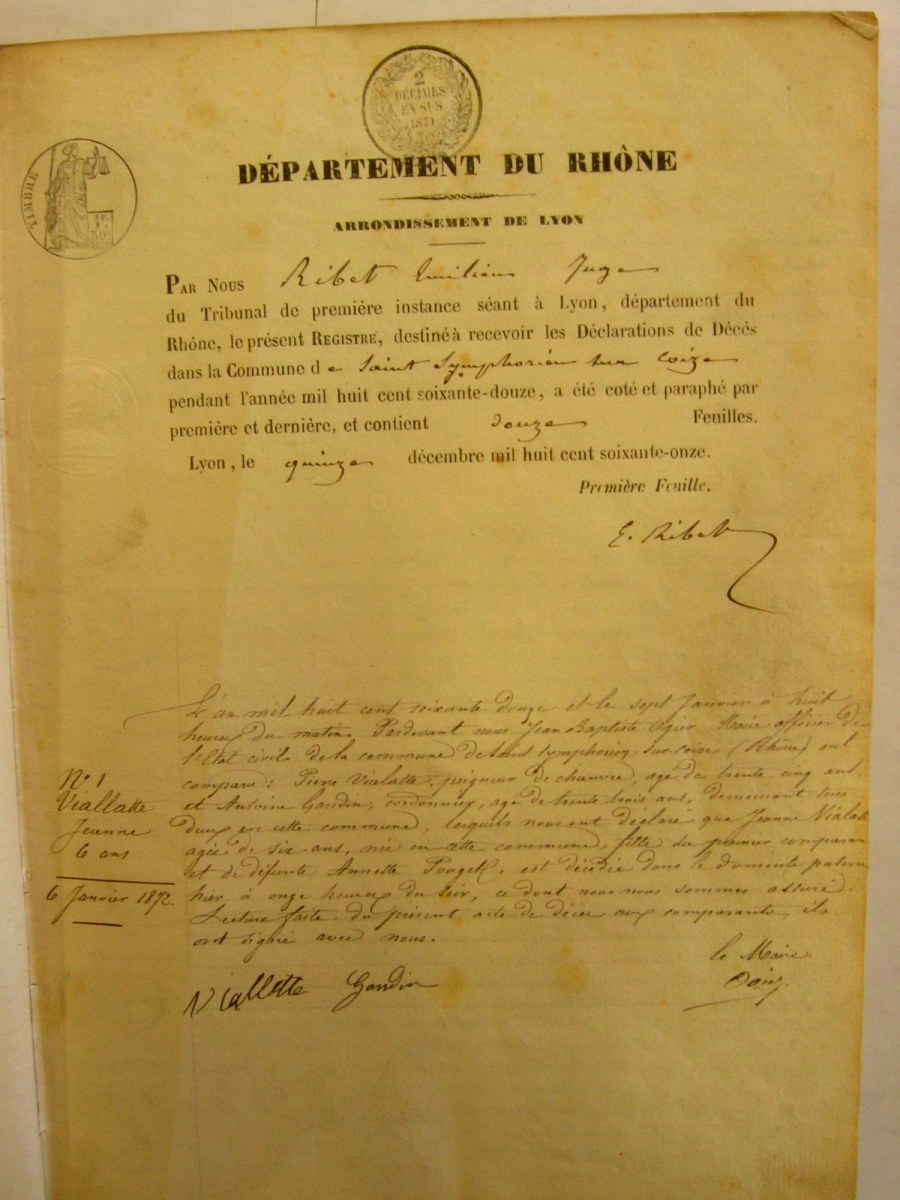 2
DÉCIMES
EN SUS
1871
TIMBRE
DÉPARTEMENT DU RHÔNE
ARRONDISSEMENT DE LYON
PAR NOUS Ribet Emilien Juge
du Tribunal de première instance séant à Lyon, département du
Rhône, le présent REGISTRE, destiné à recevoir les Déclarations de Décès
dans la Commune de Saint Symphorien sur Coize
pendant l'année mil huit cent soixante-douze, a été coté et paraphé par
première et dernière, et contient douze Feuilles.
Lyon, le quinze décembre mil huit cent soixante-onze.
Première Feuille.
E. Ribet
L'an mil huit cent soixante douze et le sept Janvier à huit
heures du matin Pardevant nous Jean Baptiste Maire officier de
l'Etat civil de la commune de Saint Symphorien-sur-Coise (Rhône) ont
comparu : Pierre Vialatte, peigneur de chanvre, agé de trente cinq ans
et Antoine Gandin, cordonnier, agé de trente trois ans, demeurant tous
deux en cette commune, lesquels nous ont declaré que Jeanne Vialatte
agée de six ans, née en cette commune, fille du premier comparant
et de défunte Annette est décédée dans le domicile paternel
hier à onze heures du soir, ce dont nous nous sommes assuré.
Lecture faite du présent acte de décès aux comparants, ils
ont signé avec nous.
N° 1
Viallatte
Jeanne
6 ans
6 Janvier 1872.
Viallette Gandin
le Maire